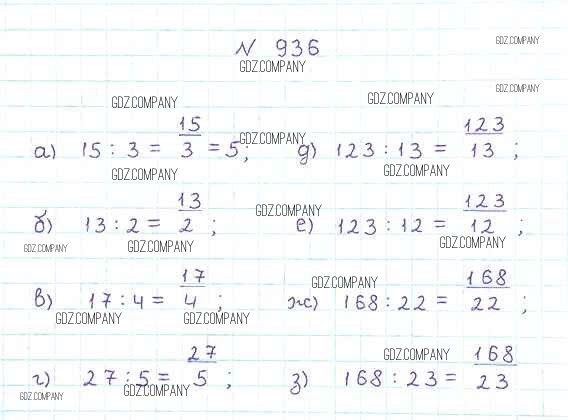 N 936
GDZ.COMPANY
GDZ.COMPANY
GDZ.COMPANY
GDZ.COMPANY
GDZ.COMPANY
а) 15 : 3 = 15/3 = 5;
GDZ.COMPANY
д) 123 : 13 = 123/13 ;
GDZ.COMPANY
GDZ.COMPANY
б) 13 : 2 = 13/2 ;
GDZ.COMPANY
е) 123 : 12 = 123/12 ;
GDZ.COMPANY
GDZ.COMPANY
GDZ.COMPANY
в) 17 : 4 = 17/4 ;
GDZ.COMPANY
ж) 168 : 22 = 168/22 ;
GDZ.COMPANY
GDZ.COMPANY
GDZ.COMPANY
г) 27 : 5 = 27/5 ;
з) 168 : 23 = 168/23
GDZ.COMPANY
GDZ.COMPANY